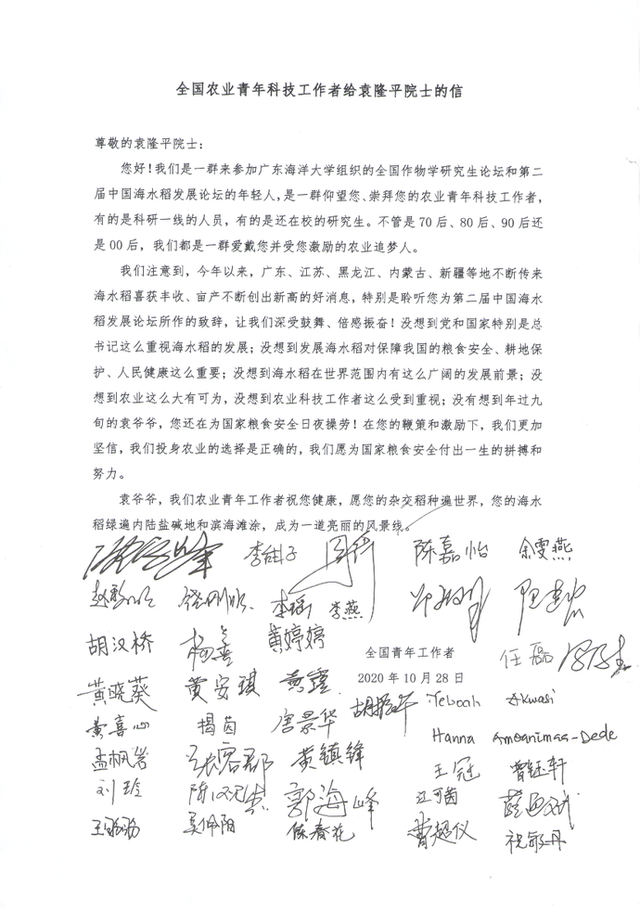 全国农业青年科技工作者给袁隆平院士的信
尊敬的袁隆平院士：
您好！我们是一群来参加广东海洋大学组织的全国作物学研究生论坛和第二
届中国海水稻发展论坛的年轻人，是一群仰望您、崇拜您的农业青年科技工作者，
有的是科研一线的人员，有的是还在校的研究生。不管是 70 后、80 后、90 后还
是 00 后，我们都是一群爱戴您并受您激励的农业追梦人。
我们注意到，今年以来，广东、江苏、黑龙江、内蒙古、新疆等地不断传来
海水稻喜获丰收、亩产不断创出新高的好消息，特别是聆听您为第二届中国海水
稻发展论坛所作的致辞，让我们深受鼓舞、倍感振奋！没想到党和国家特别是总
书记这么重视海水稻的发展；没想到发展海水稻对保障我国的粮食安全、耕地保
护、人民健康这么重要；没想到海水稻在世界范围内有这么广阔的发展前景；没
想到农业这么大有可为，没想到农业科技工作者这么受到重视；没有想到年过九
旬的袁爷爷，您还在为国家粮食安全日夜操劳！在您的鞭策和激励下，我们更加
坚信，我们投身农业的选择是正确的，我们愿为国家粮食安全付出一生的拼搏和
努力。
袁爷爷，我们农业青年工作者祝您健康，愿您的杂交稻种遍世界，您的海水
稻绿遍内陆盐碱地和滨海滩涂，成为一道亮丽的风景线。
陈嘉怡 余雯燕
李瑶 李燕
胡汉桥 杨善 黄婷婷
全国青年工作者
任磊
2020 年 10 月 28 日
黄晓葵 黄安琪 Yeboah Akwasi
黄喜心 揭茵 唐景华
Hanna Amoanimaa-Dede
孟帆岩 张容郡 黄镇锋 王冠 曾钰轩
刘玲 郭海峰 江可茵
吴佩阳 陈春花 曹超仪 祝敏丹